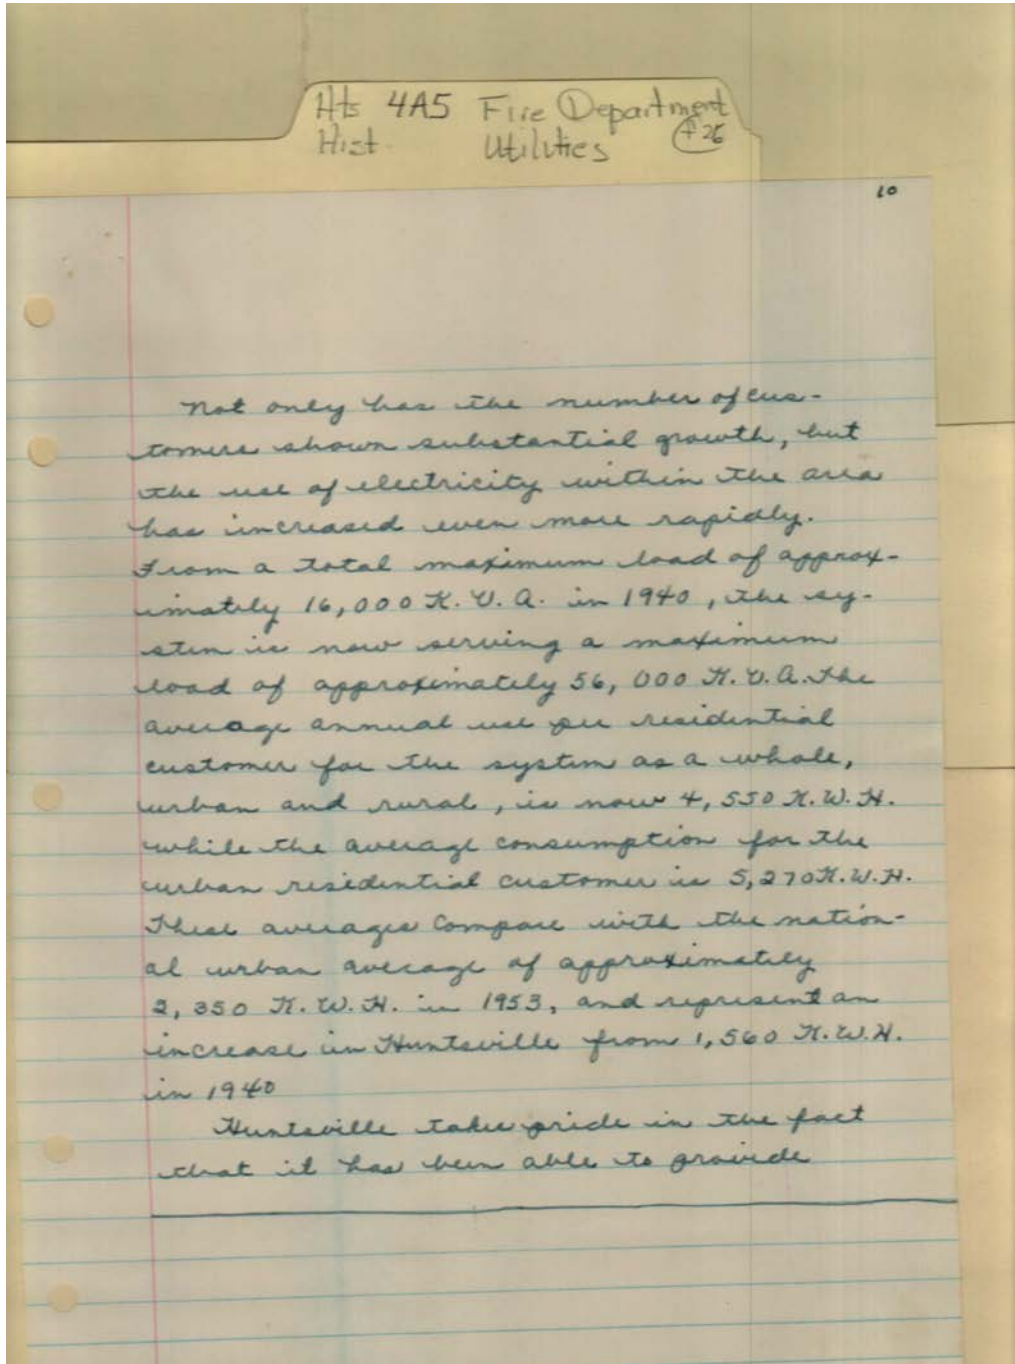 Hts 4A5 Fire Department
Hist. Utilities #26
10
Not only has the number of cus-
tomers shown substantial growth, but
the use of electricity within the area
has increased even more rapidly.
From a total maximum load of approx-
imately 16,000 K.V.A. in 1940, the sy-
stem is now serving a maximum
load of approximately 56,000 K.V.A. The
average annual use per residential
customer for the system as a whole,
urban and rural, is now 4,550 K.W.H.
while the average consumption for the
urban residential customer is 5,270 K.W.H.
These averages compare with the nation-
al urban average of approximately
2,350 K.W.H. in 1953, and represent an
increase in Huntsville from 1,560 K.W.H.
in 1940
Huntsville takes pride in the fact
that it has been able to provide